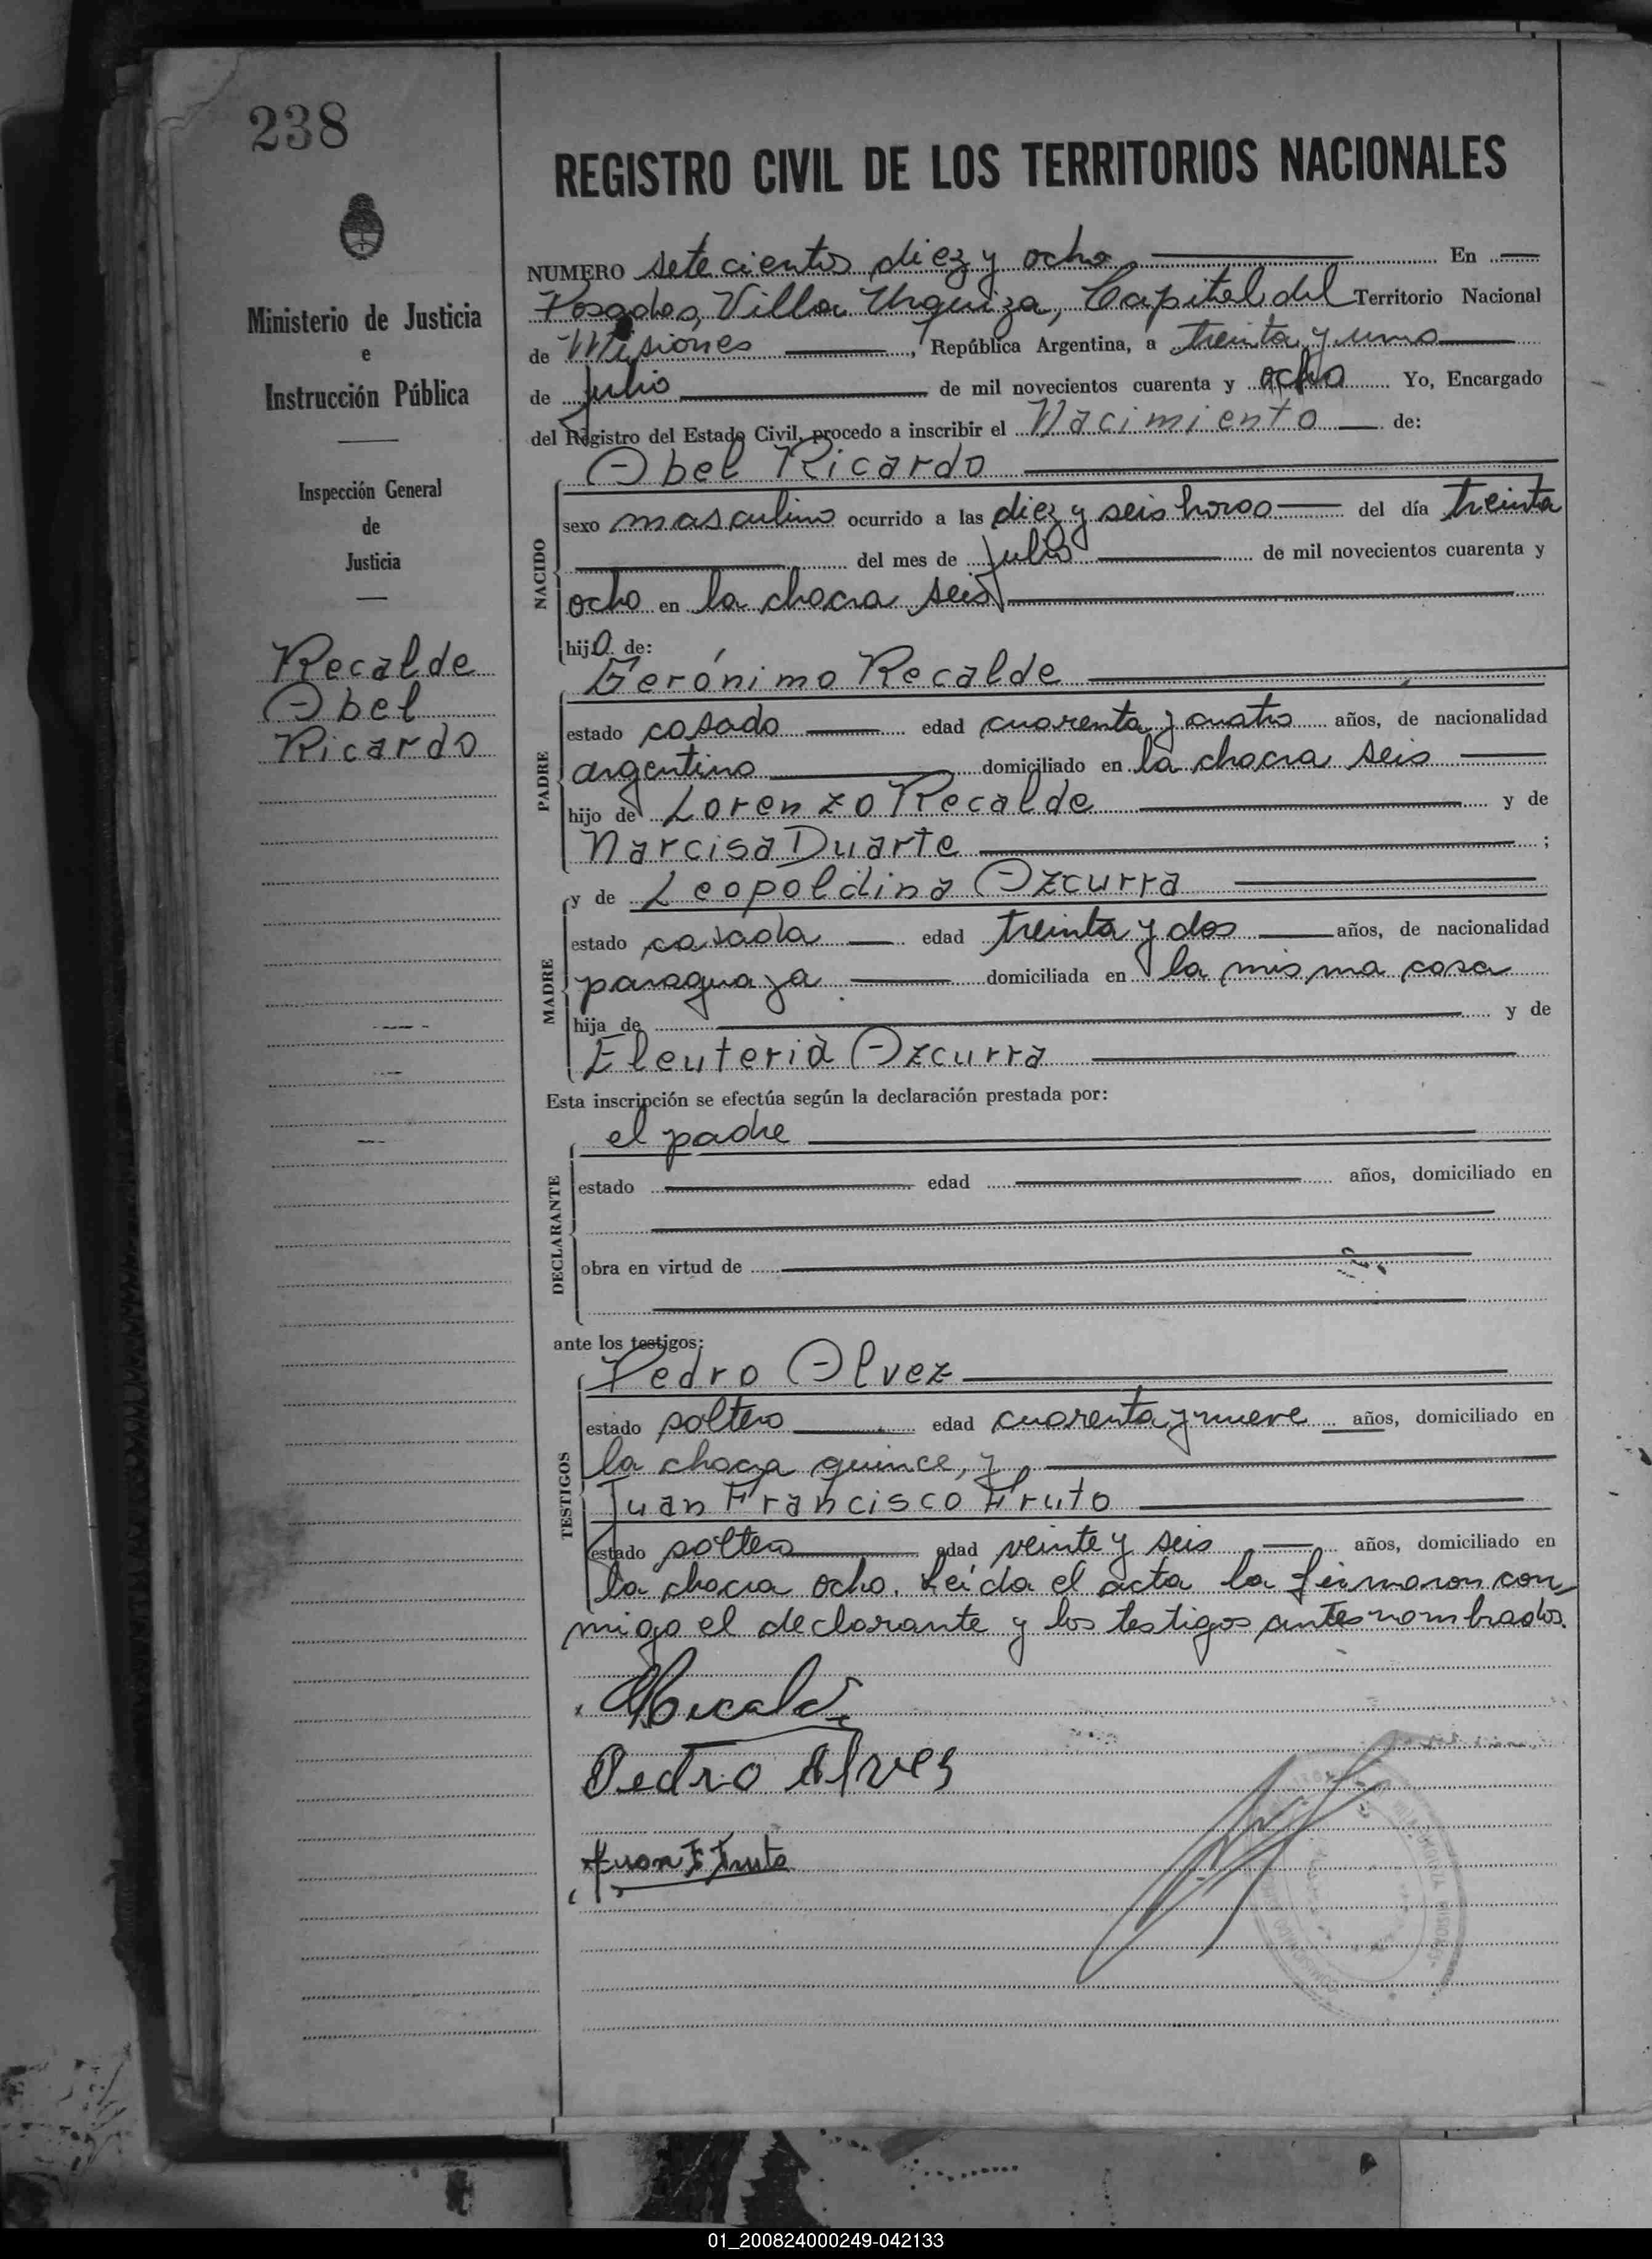 238
REGISTRO CIVIL DE LOS TERRITORIOS NACIONALES
Ministerio de Justicia
e
Instrucción Pública
Inspección General
de
Justicia
Recalde
Abel
Ricardo
NUMERO setecientos diez y ocho En
Posadas, Villa Urquiza, Capital del Territorio Nacional
de Misiones, República Argentina, a treinta y uno
de Julio de mil novecientos cuarenta y ocho Yo, Encargado
del Registro del Estado Civil, procedo a inscribir el Nacimiento de:
Abel Ricardo
NACIDO
sexo masculino ocurrido a las diez y seis horas del día treinta
del mes de Julio de mil novecientos cuarenta y
ocho en la chacra seis
hijo de:
Gerónimo Recalde
PADRE
estado casado edad cuarenta y cuatro años, de nacionalidad
argentino domiciliado en la chacra seis
hijo de Lorenzo Recalde y de
Narcisa Duarte ;
y de Leopoldina Azcurra
MADRE
estado casada edad treinta y dos años, de nacionalidad
paraguaya domiciliada en la misma casa
hija de y de
Eleuteria Azcurra
Esta inscripción se efectúa según la declaración prestada por:
el padre
DECLARANTE
estado edad años, domiciliado en
obra en virtud de
ante los testigos:
Pedro Alvez
TESTIGOS
estado soltero edad cuarenta y nueve años, domiciliado en
la chacra quince, y
Juan Francisco Fruto
estado soltero edad veinte y seis años, domiciliado en
la chacra ocho. Leída el acta la firmaron con
migo el declarante y los testigos antes nombrados.
Recalde
Pedro Alves
Juan F Fruto
01_200824000249-042133